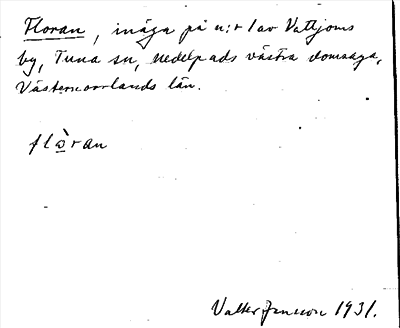 Floran, inäga på n:r 1 av Vattjoms
by, Tuna sn, Medelpads västra domsaga,
Västernorrlands län.
flòran
Valter Jansson 1931.